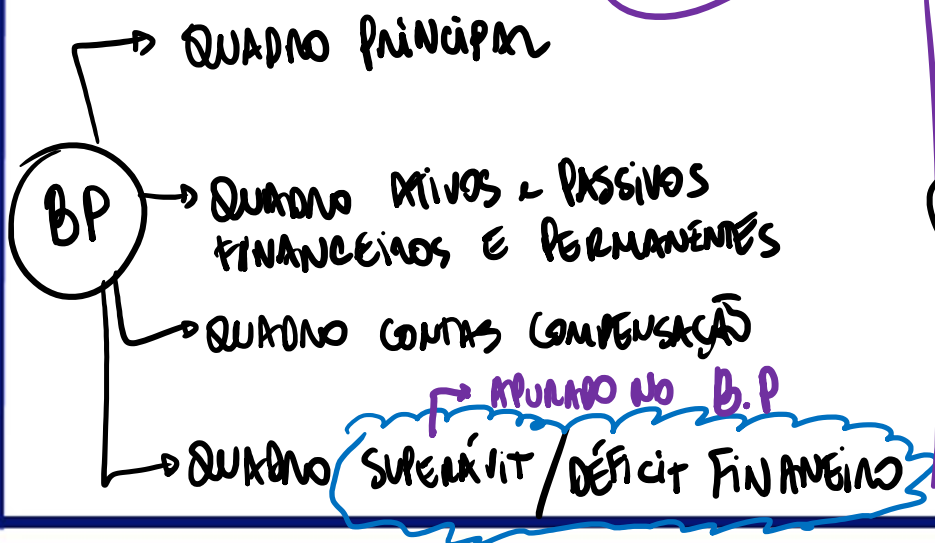 QUADRO PRINCIPAL
BP
QUADRO ATIVOS e PASSIVOS
FINANCEIROS E PERMANENTES
QUADRO CONTAS COMPENSAÇÃO
APURADO NO B.P
QUADRO SUPERÁVIT / DÉFICIT FINANEIRO